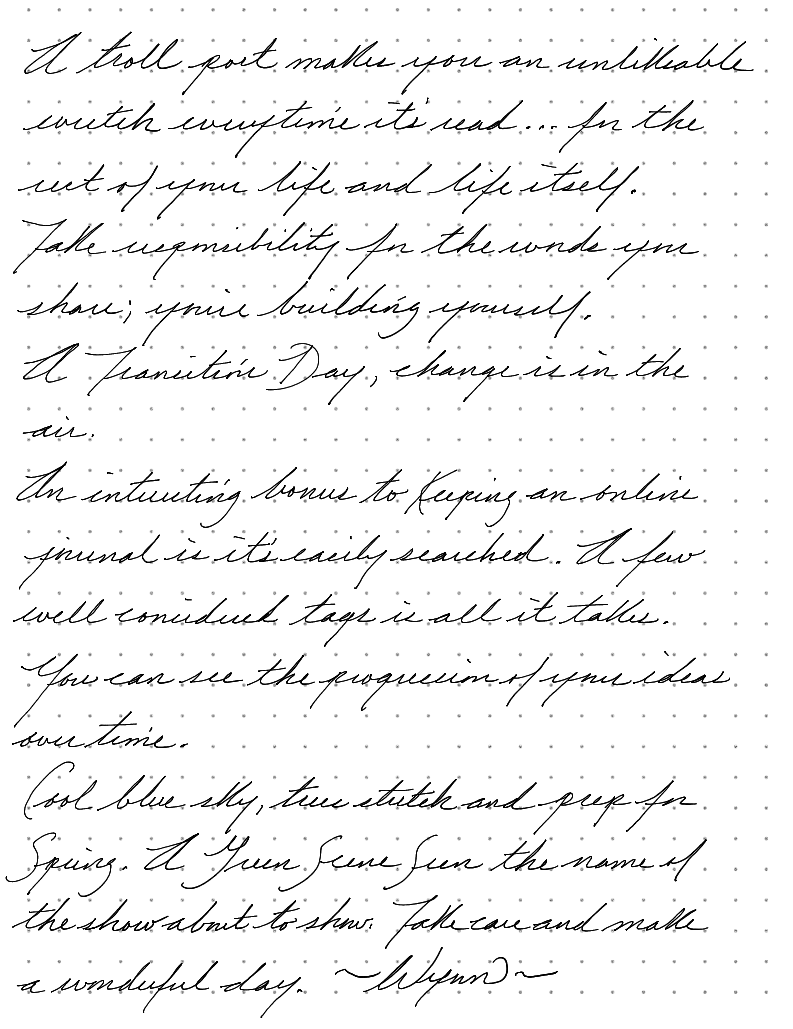 A troll post makes you an unlikeable
wretch everytime it's read... for the
rest of your life and life itself.
Take responsibility for the words you
share; you're building yourself.
A Transition Day, change is in the
air.
An interesting bonus to keeping an online
journal is it's easily searched. A few
well considered tags is all it takes.
You can see the progression of your ideas
over time.
Cool blue sky, trees stretch and prep for
Spring. A Green Scene Seen the name of
the show about to show. Take care and make
a wonderful day. ~Wynn~